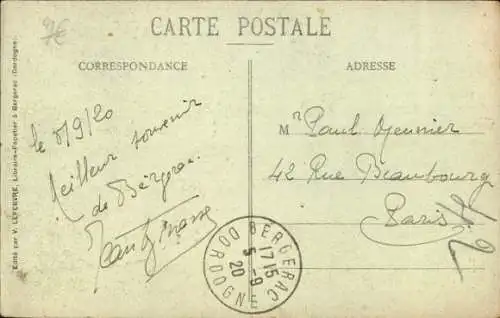 4€
CARTE POSTALE
CORRESPONDANCE
ADRESSE
Edité par V. LEFEBVRE, Libraire-Papetier à Bergerac (Dordogne)
le 5/9/20
Meilleur souvenir
de Bergerac.
Mr Paul Meunier
42 Rue Beaubourg
Paris
BERGERAC
1715
5-9
20
DORDOGNE